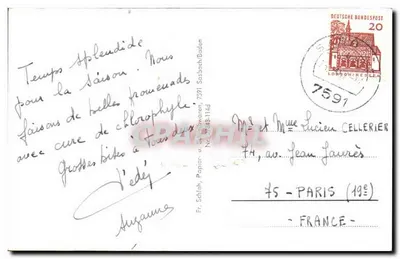 DEUTSCHE BUNDESPOST
20
7591
Temps splendide
pour la saison. Nous
faisons de belles promenades
avec cure de chlorophylle.
Grosses bises à Tous deux
Suzanne
Fr. Schlak, Papier- u. 7591 Sasbach/Baden
Mr et Mme Lucien CELLERIER
74, av. Jean Jaurès
75 - PARIS (19e)
- FRANCE -